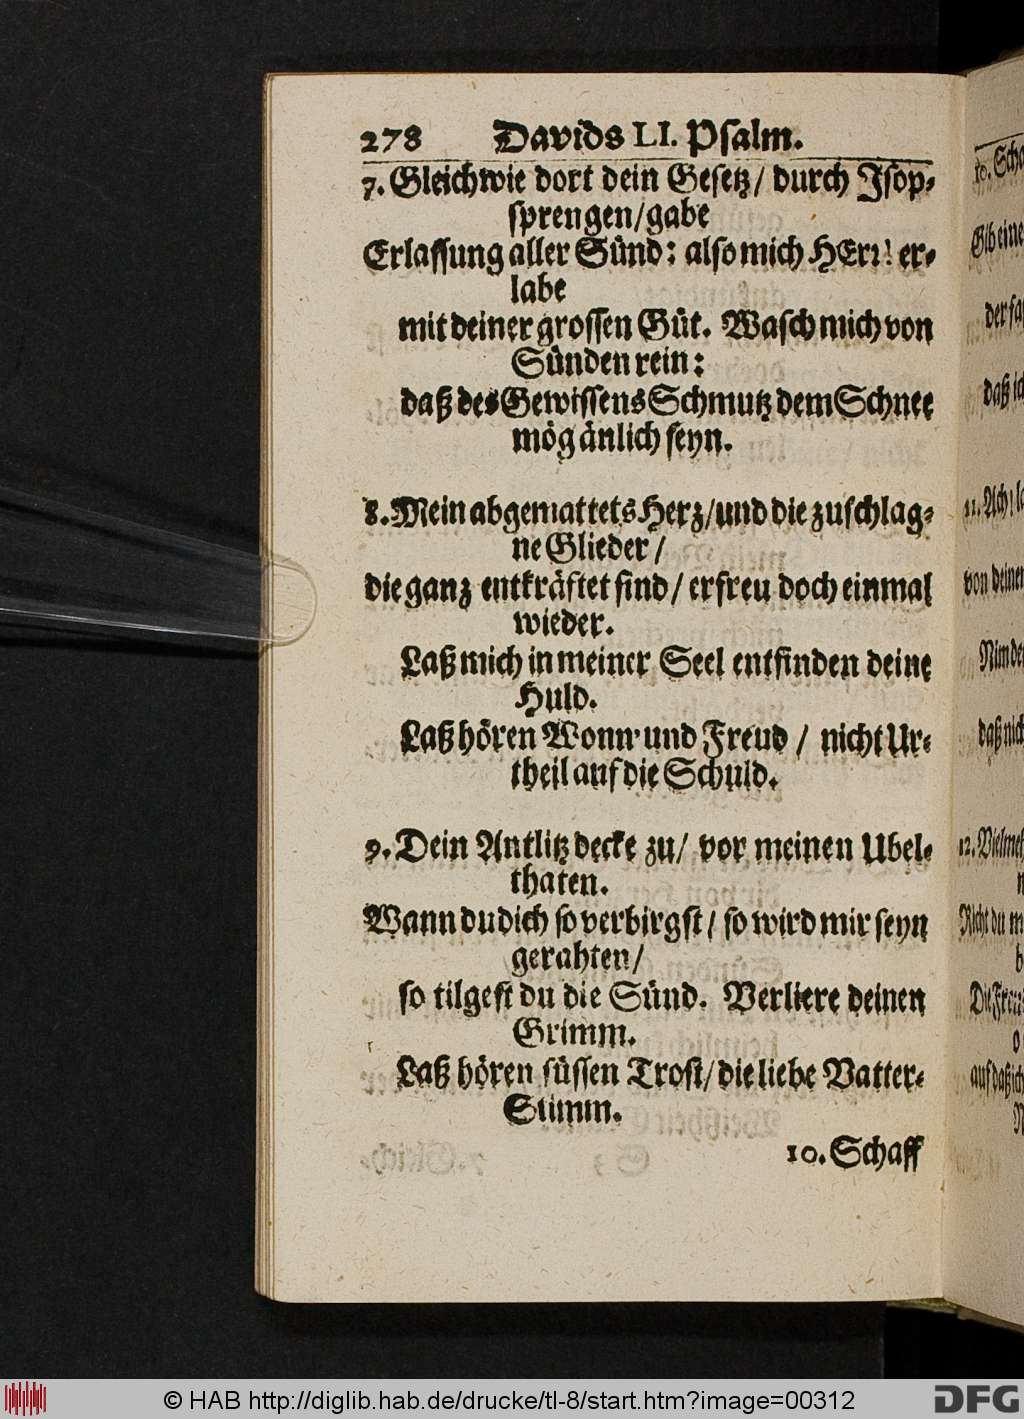 278 Davids LI. Psalm.
7. Gleichwie dort dein Gesetz/ durch Jsop-
sprengen/gabe
Erlassung aller Sünd: also mich HErr! er-
labe
mit deiner grossen Güt. Wasch mich von
Sünden rein:
daß des Gewissens Schmutz dem Schnee
mög änlich seyn.
8. Mein abgemattets Herz/und die zuschlag-
ne Glieder/
die ganz entkräftet sind/ erfreu doch einmal
wieder.
Laß mich in meiner Seel entfinden deine
Huld.
Laß hören Wonn' und Freud / nicht Ur-
theil auf die Schuld.
9. Dein Antlitz decke zu/ vor meinen Ubel-
thaten.
Wann du dich so verbirgst/ so wird mir seyn
gerahten/
so tilgest du die Sünd. Verliere deinen
Grimm.
Laß hören süssen Trost/ die liebe Vatter-
Stimm.
10. Schaff
10. Scha
Gib eine
der
daß
11. Ach!
von deiner
Nim
daß nich
12. Vielmeh
Nicht du
auf daß ich
© HAB http://diglib.hab.de/drucke/tl-8/start.htm?image=00312
DFG